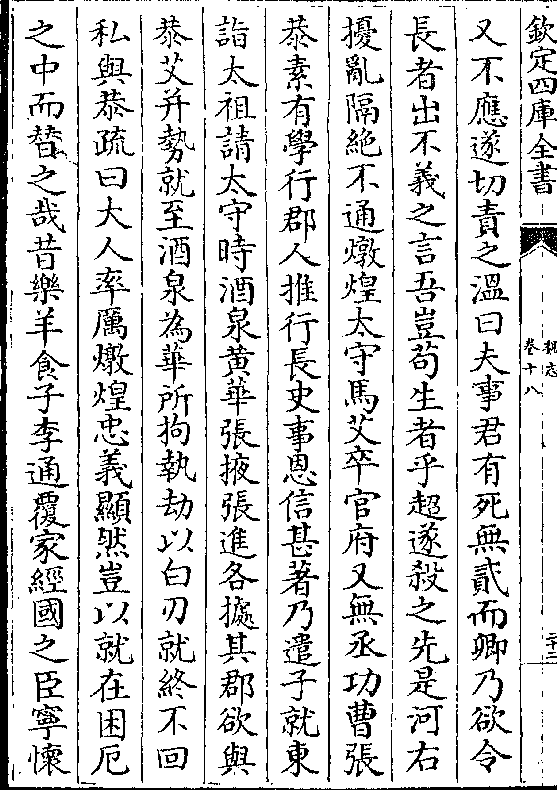 欽定四庫全書
魏志
卷十八
二十二
又不應遂切責之溫曰夫事君有死無貳而卿乃欲令
長者出不義之言吾豈苟生者乎超遂殺之先是河右
擾亂隔絶不通燉煌太守馬艾卒官府又無丞功曹張
恭素有學行郡人推行長史事恩信甚著乃遣子就東
詣太祖請太守時酒泉黃華張掖張進各據其郡欲與
恭艾并勢就至酒泉為華所拘執劫以白刃就終不回
私與恭疏曰大人率厲燉煌忠義顯然豈以就在困厄
之中而替之哉昔樂羊食子李通覆家經國之臣寧懷